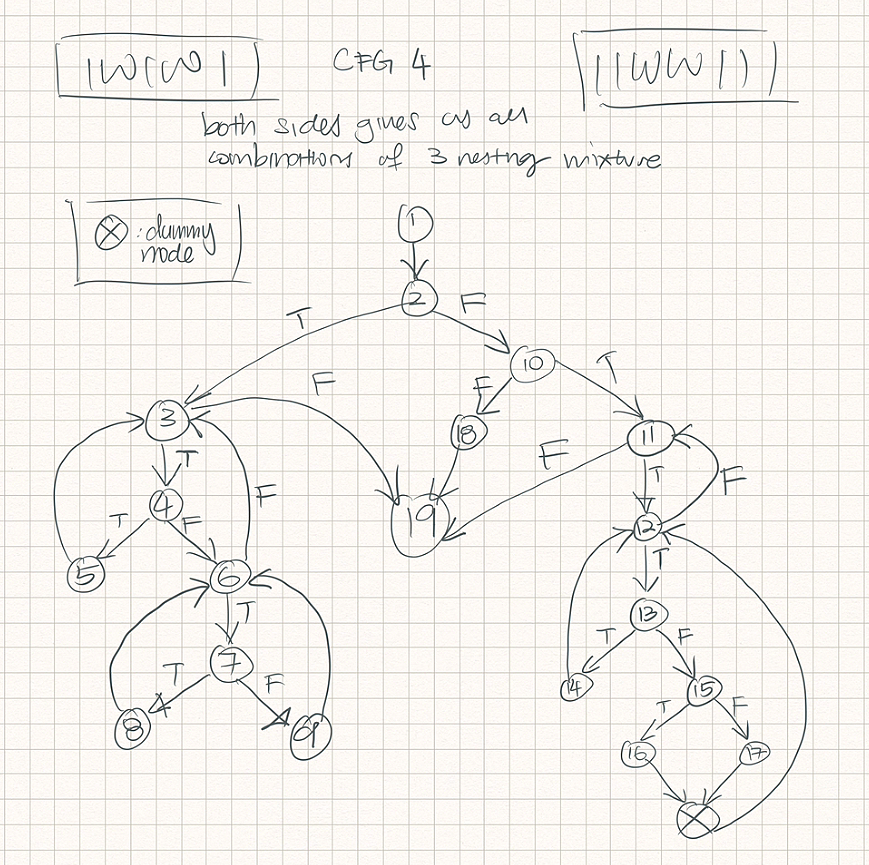 IWIWI
CFG 4
IIWWII
both sides gives us all
combinations of 3 nesting mixture
: dummy
node
1
2
T
F
10
T
F
F
3
18
11
T
F
T
F
4
F
19
12
T
F
T
5
6
13
T
T
F
7
14
15
T
F
T
F
8
9
16
17